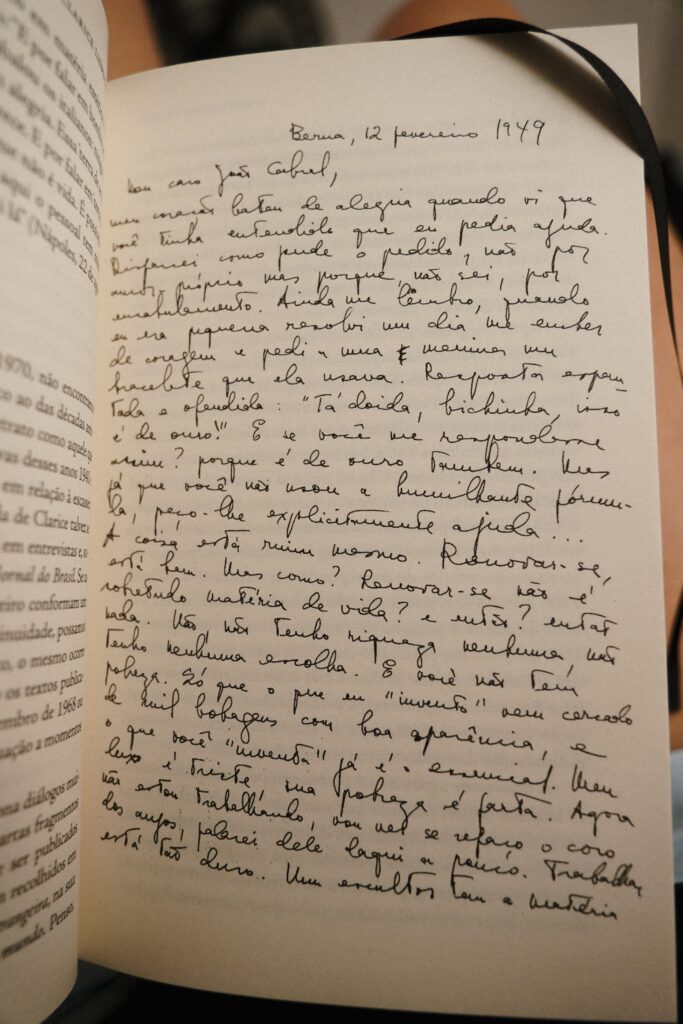 CLARICE
em matéria
"E por falar em
os italianos
alegria. Essa terra
E por falar em
que não é vida. É
aqui o pessoal tem
lá" (Nápoles, 22 de
1970, não encontra
ao das décadas
trato como aquele
vas desses anos 194
em relação à escasse
da de Clarice talvez
em entrevistas e,
Jornal do Brasil. Se a
eiro conformam um
inuidade, possamos
o, o mesmo ocorr
os textos publica-
embro de 1968 ou
sação a momentos
ona diálogos
artas fragmentos
r ser publicados
m recolhidos em
rangeira, na sua
mundo. Penso,
Berna, 12 fevereiro 1949
Meu caro João Cabral,
meu coração bateu de alegria quando vi que
você tinha entendido que eu pedia ajuda.
Disfarcei como pude o pedido, não por
amor-próprio mas porque, não sei, por
encabulamento. Ainda me lembro, quando
eu era pequena resolvi um dia me encher
de coragem e pedi a uma menina um
bracelete que ela usava. Resposta espan-
tada e ofendida: "Tá doida, bichinha, isso
é de ouro!" E se você me respondesse
assim? porque é de ouro também. Mas
já que você não usou a humilhante fórmu-
la, peço-lhe explicitamente ajuda...
A coisa está ruim mesmo. Renovar-se,
está bem. Mas como? Renovar-se não é
sobretudo matéria de vida? e então? então
nada. Não, não tenho riqueza nenhuma, não
tenho nenhuma escolha. E você não tem
pobreza. Só que o que eu "invento" vem cercado
de mil bobagens com boa aparência, e
o que você "inventa" já é o essencial. Meu
luxo é triste, sua pobreza é farta. Agora
não estou trabalhando, vou ver se refaço o coro
dos anjos, falarei dele daqui a pouco. Trabalhar
está tão duro.. Um escultor tem a matéria